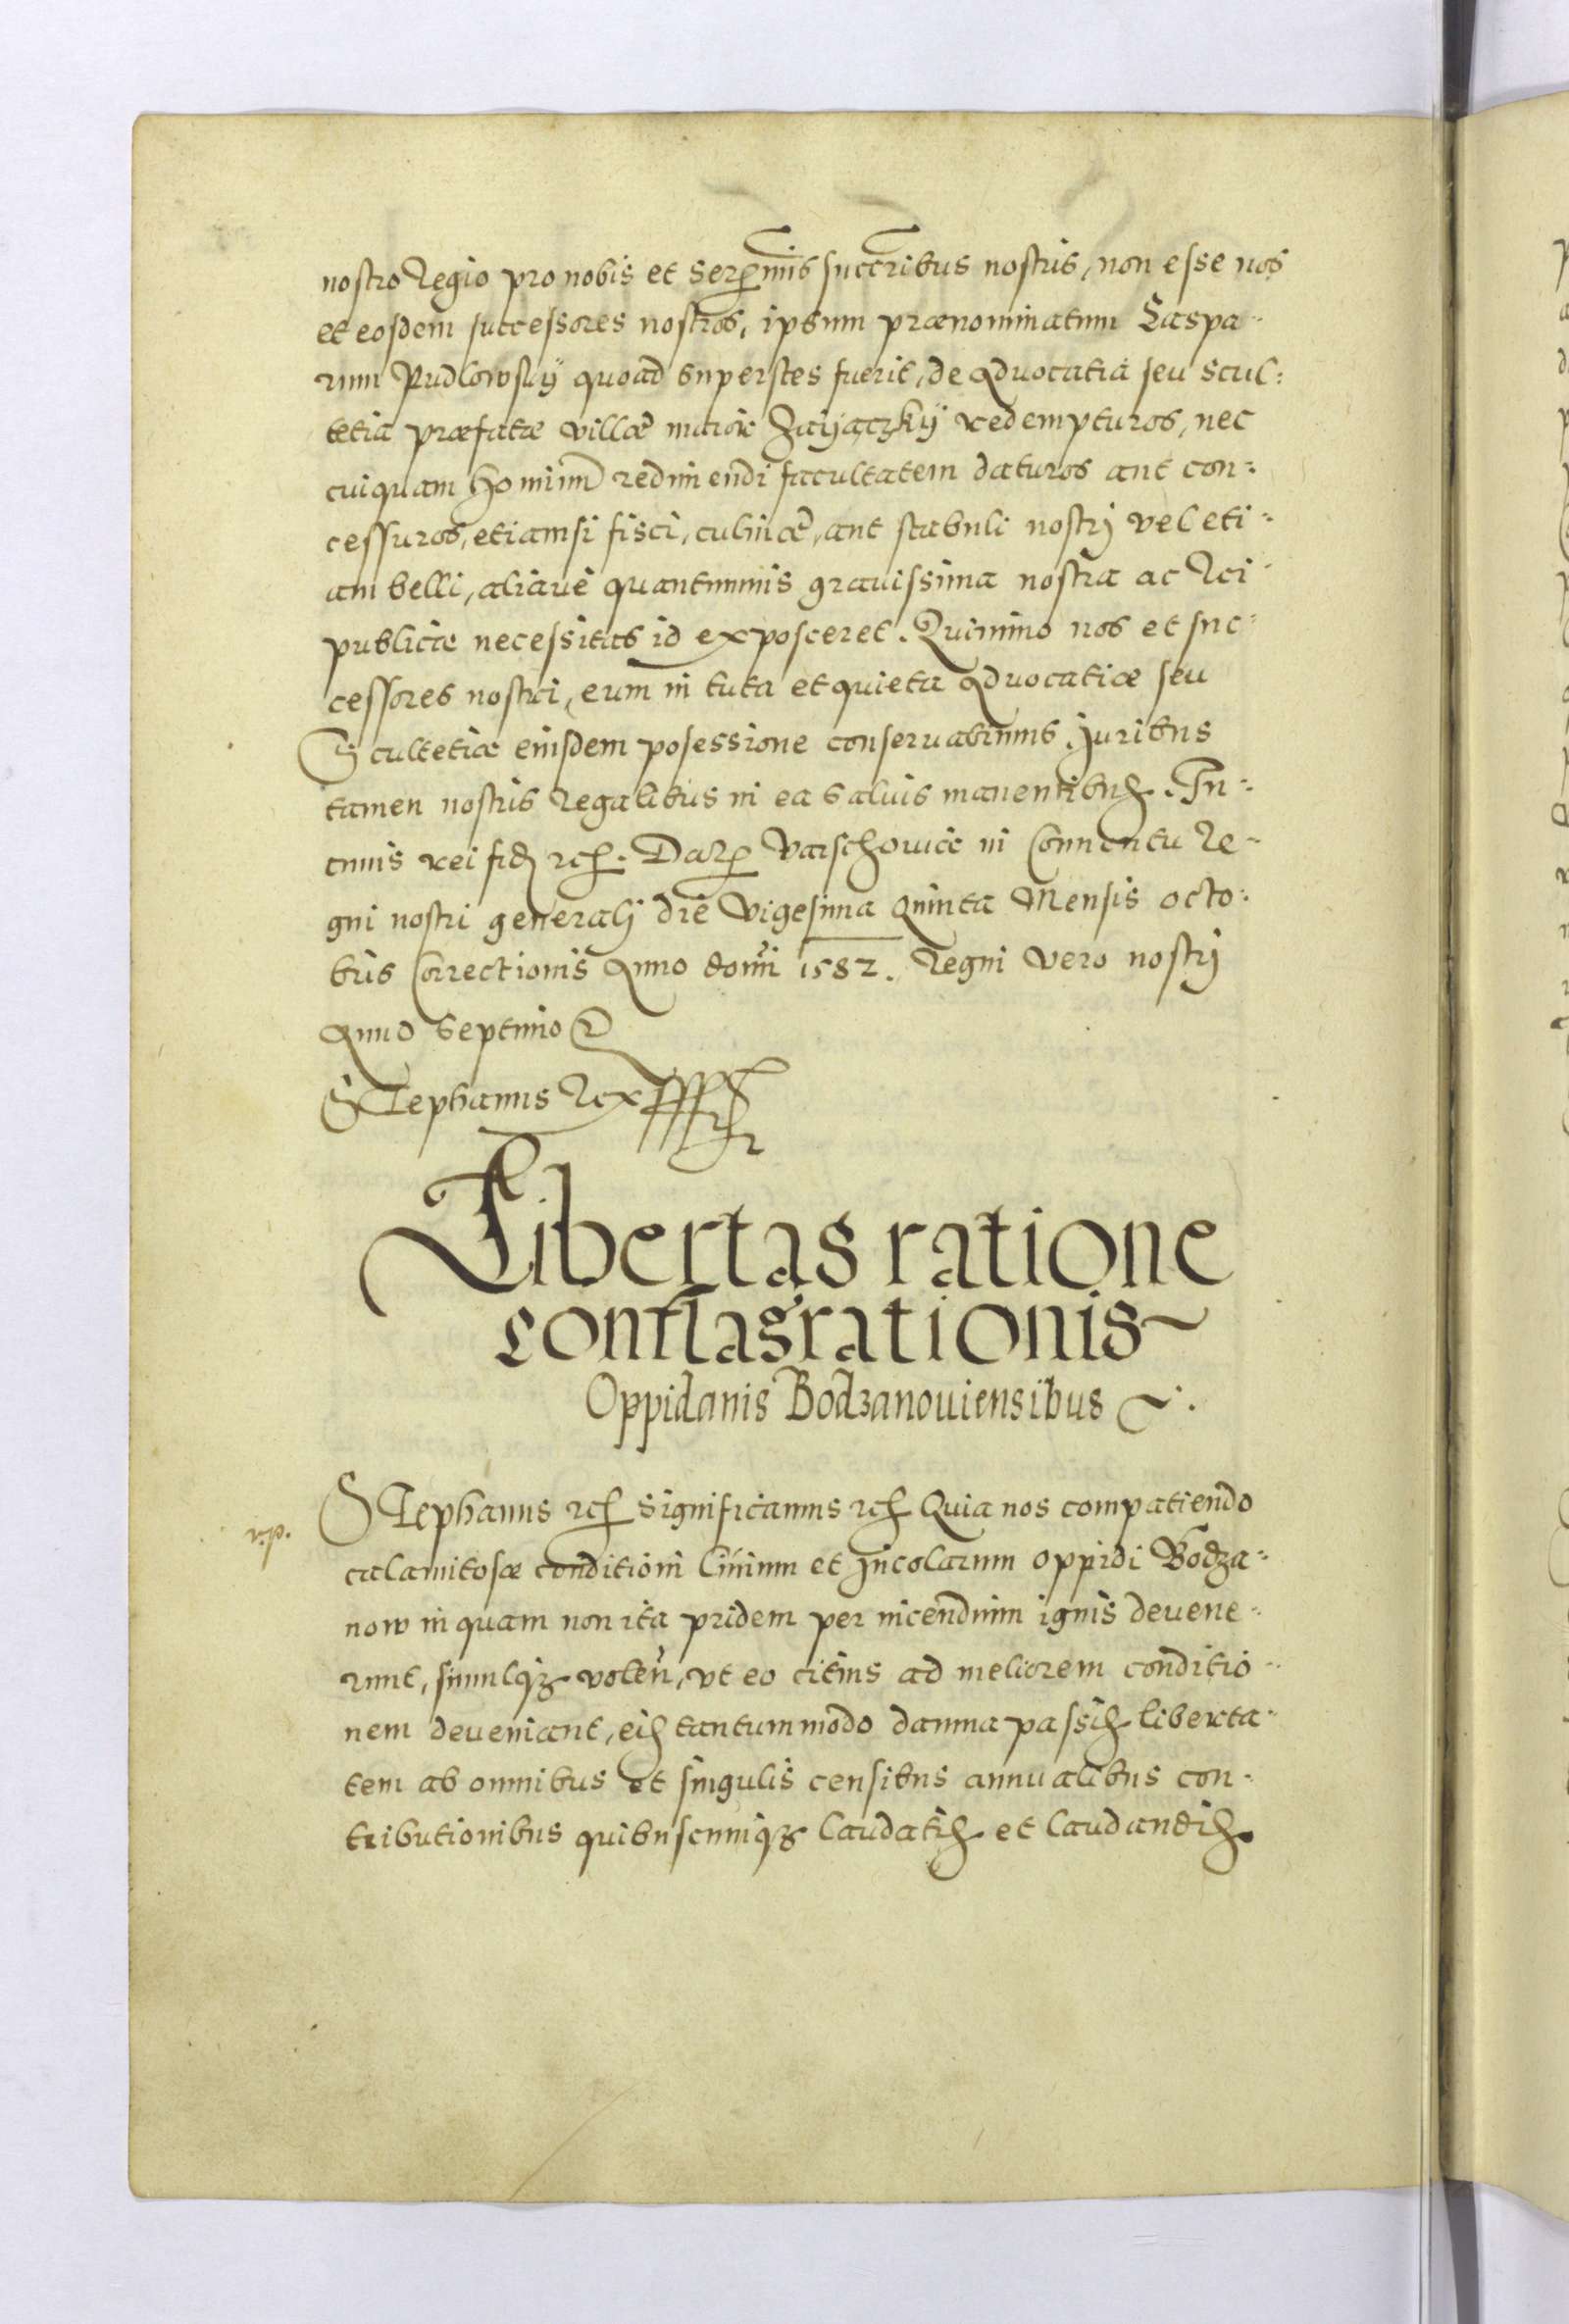 nostro Regio pro nobis et Serenmis succribus nostris, non esse nos
et eosdem successores nostros, ipsum prænominatum Caspa-
rum Pudlowsky quoad superstes fuerit, de Advocatia seu Scul:
tetia præfatæ villæ Zaijączky redempturos, nec
cuiquam Hominũ redimendi facultatem daturos aut con:
cessuros, etiamsi fisci, culinæ, aut stabuli nostrj vel eti:
am belli, aliavè quantumuis grauissima nostra ac Rei
publicæ necessitas id exposceret. Quinimo nos et suc:
cessores nostri, eum in tuta et quieta Advocatiæ seu
Scultetiæ eiusdem posessione conseruabimus, Juribus
tamen nostris Regalibus in ea saluis manentibus. In:
cuius rei fid etc. Dat Varschouiæ in Conuentu Re-
gni nostri generalj die Vigesima Quinta Mensis Octo:
bris Correctionis Anno domi 1582. Regni vero nostrj
Anno Septimo
Stephanus Rex
Libertas ratione
conflagrationis
Oppidanis Bodzanouiensibus
Stephanus etc Significamus etc Quia nos compatiendo
calamitosæ conditioni Ciuium et Incolarum oppidi Bodza:
now in quam non ita pridem per incendium ignis deuene:
runt, simulq3 volen, vt eo citius ad meliorem conditio
nem deueniant, eis tantummodo damna passis liberta:
tem ab omnibus et singulis censibus annualibus con:
tributionibus quibuscumq3 laudatis et laudandis